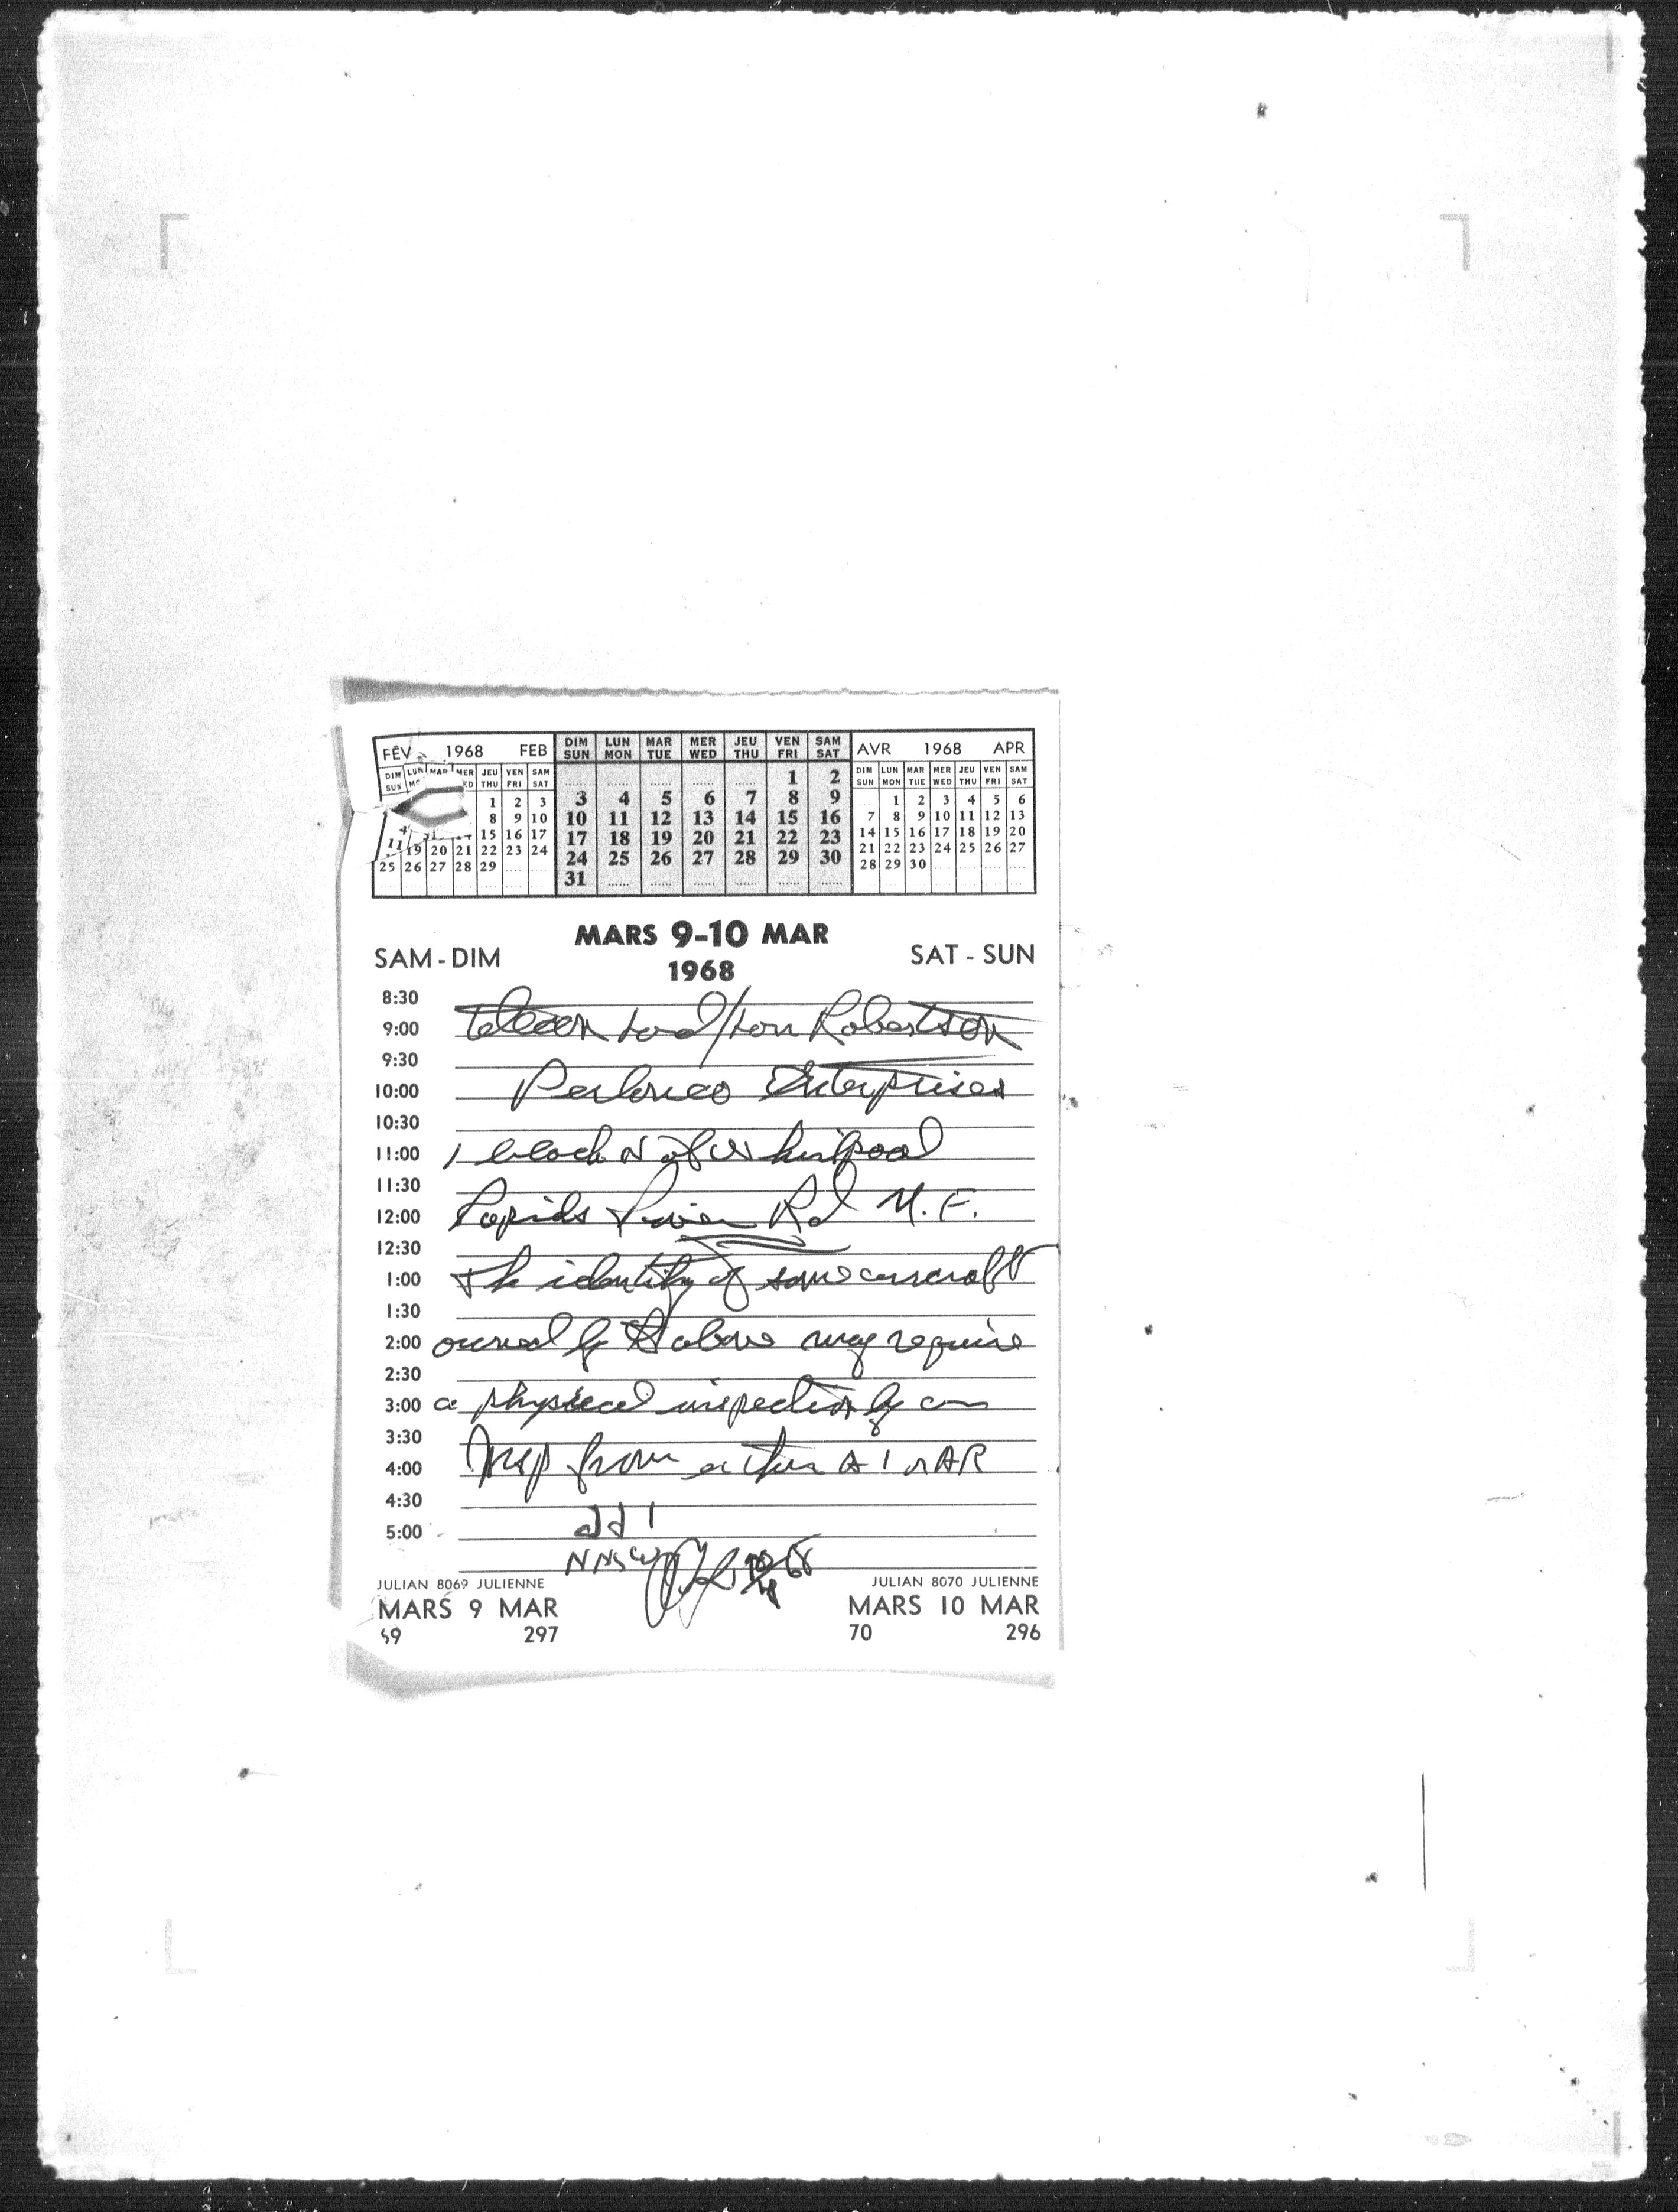 FÉV 1968 FEB
DIM LUN MAR MER JEU VEN SAM
SUN THU FRI SAT
1 2 3
8 9 10
11 15 16 17
19 20 21 22 23 24
25 26 27 28 29
DIM LUN MAR MER JEU VEN SAM
SUN MON TUE WED THU FRI SAT
1 2
3 4 5 6 7 8 9
10 11 12 13 14 15 16
17 18 19 20 21 22 23
24 25 26 27 28 29 30
31
AVR 1968 APR
DIM LUN MAR MER JEU VEN SAM
SUN MON TUE WED THU FRI SAT
1 2 3 4 5 6
7 8 9 10 11 12 13
14 15 16 17 18 19 20
21 22 23 24 25 26 27
28 29 30
MARS 9-10 MAR
SAM - DIM SAT - SUN
1968
8:30
9:00 Telecon Robertson
9:30
10:00 Enterprises
10:30
11:00 1 block N of Whirlpool
11:30
12:00 Rapids Rd N.F.
12:30
1:00 The identity of some aircraft
1:30
2:00 owned by above may require
2:30
3:00 a physical inspection by an
3:30
4:00 Insp from either AI or AR
4:30
5:00
68
JULIAN 8069 JULIENNE JULIAN 8070 JULIENNE
MARS 9 MAR MARS 10 MAR
69 297 70 296